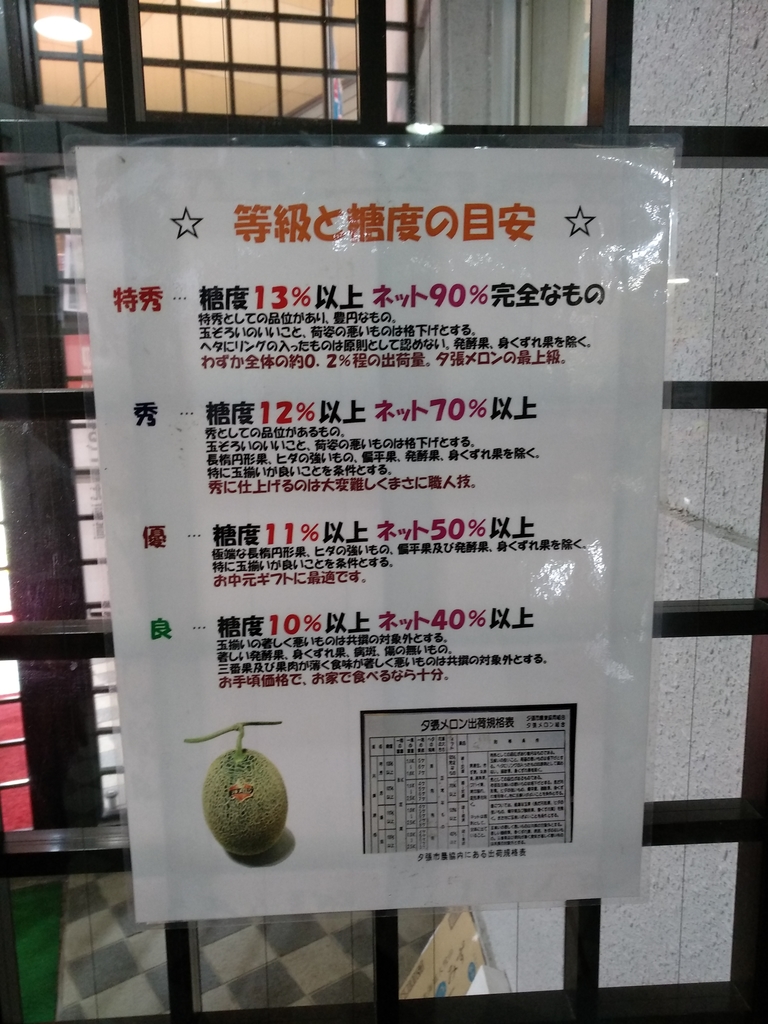 ☆ 等級と糖度の目安 ☆
特秀 … 糖度13%以上 ネット90%完全なもの
特秀としての品位があり、豊円なもの。
玉ぞろいのいいこと、荷姿の悪いものは格下げとする。
ヘタにリングの入ったものは原則として認めない。発酵果、身くずれ果を除く。
わずか全体の約0.2%程の出荷量。夕張メロンの最上級。
秀 … 糖度12%以上 ネット70%以上
秀としての品位があるもの。
玉ぞろいのいいこと、荷姿の悪いものは格下げとする。
長楕円形果、ヒダの強いもの、偏平果、発酵果、身くずれ果を除く。
特に玉揃いが良いことを条件とする。
秀に仕上げるのは大変難しくまさに職人技。
優 … 糖度11%以上 ネット50%以上
極端な長楕円形果、ヒダの強いもの、偏平果及び発酵果、身くずれ果を除く。
特に玉揃いが良いことを条件とする。
お中元ギフトに最適です。
良 … 糖度10%以上 ネット40%以上
玉揃いの著しく悪いものは共撰の対象外とする。
著しい発酵果、身くずれ果、病斑、傷の無いもの。
三番果及び果肉が薄く食味が著しく悪いものは共撰の対象外とする。
お手頃価格で、お家で食べるなら十分。
夕張メロン出荷規格表
夕張市農協内にある出荷規格表